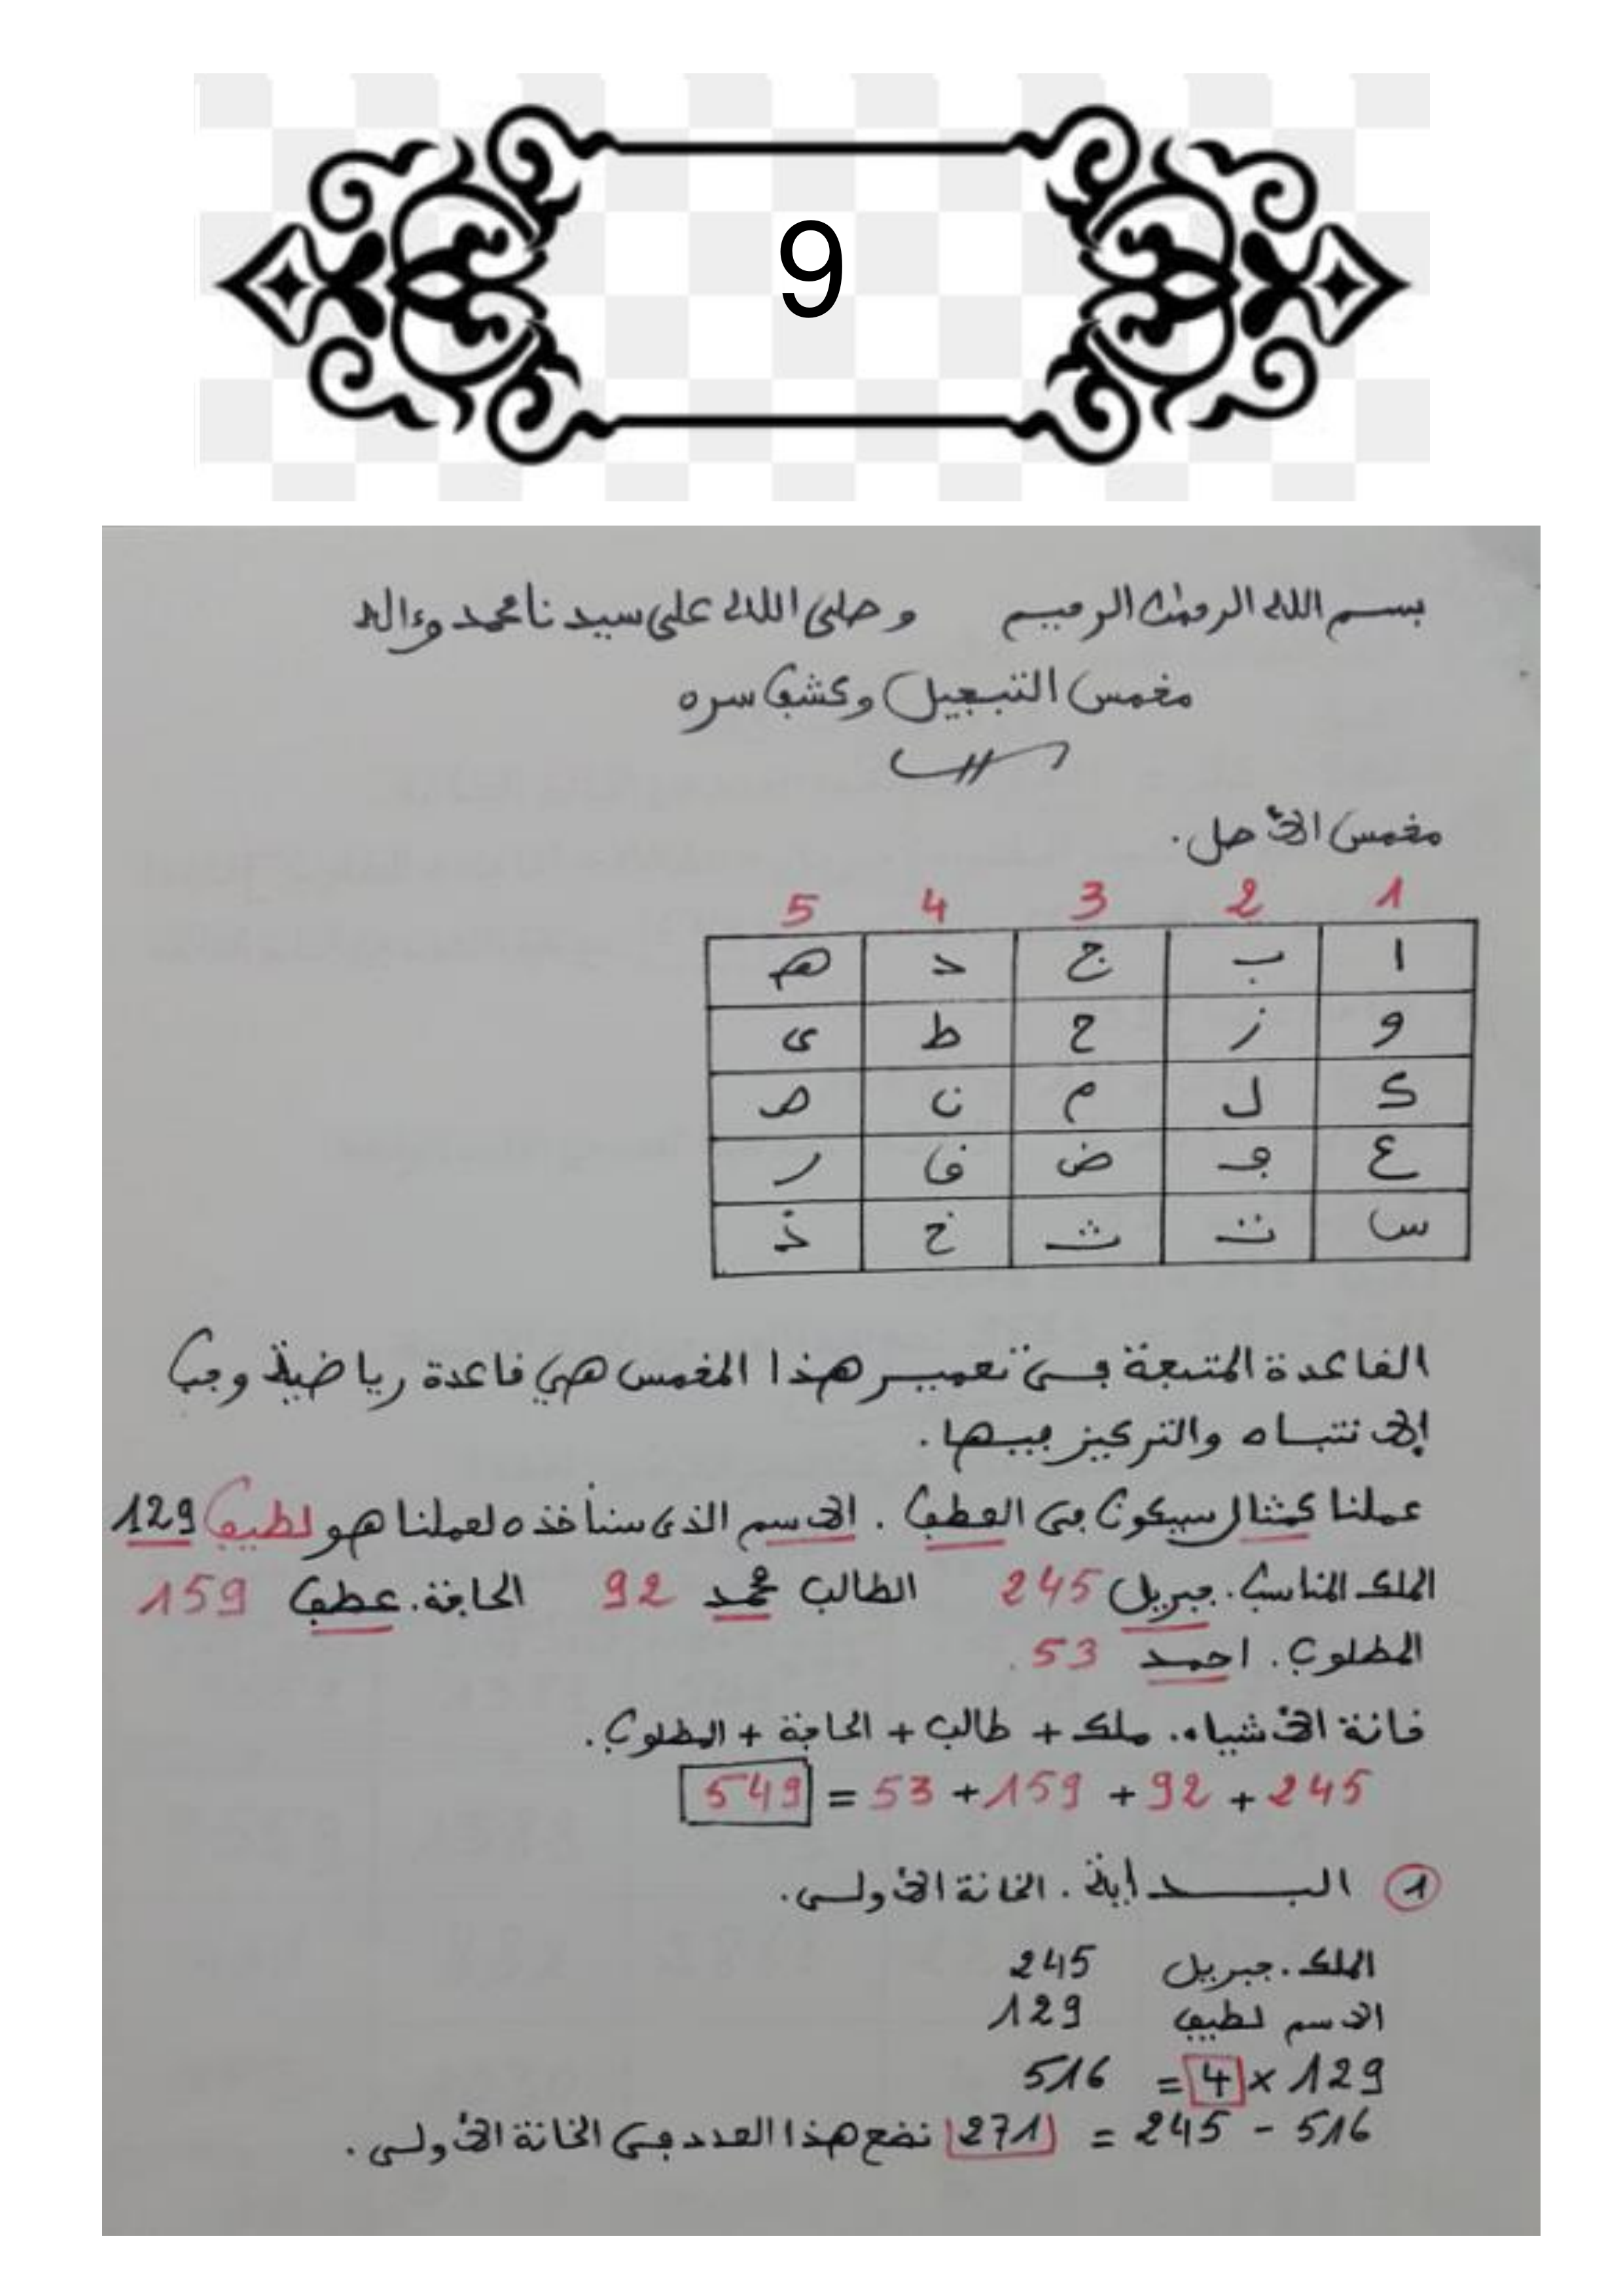 9
بسم الله الرحمن الرحيم وصلى الله على سيدنا محمد وءاله
مخمس التبجيل وكشف سره
مخمس الأصل.
5 4 3 2 1
ا ب ج د ه
و ز ح ط ى
ك ل م ن ص
ع ف ض ق ر
س ت ث خ ذ
القاعدة المتبعة في تعمير هذا المخمس هي قاعدة رياضية وجب
الانتباه والتركيز فيها.
عملنا كمثال سيكون في العطف. الاسم الذي سنأخذه لعملنا هو لطيف 129
الملك المناسب. جبريل 245 الطالب محمد 92 الحاجة. عطف 159
المطلوب. احمد 53
خانة الأشياء. ملك + طالب + الحاجة + المطلوب.
245 + 92 + 159 + 53 = 549
1 البداية. الخانة الأولى.
الملك. جبريل 245
الاسم لطيف 129
129 × 4 = 516
516 - 245 = 271 نضع هذا العدد في الخانة الأولى.